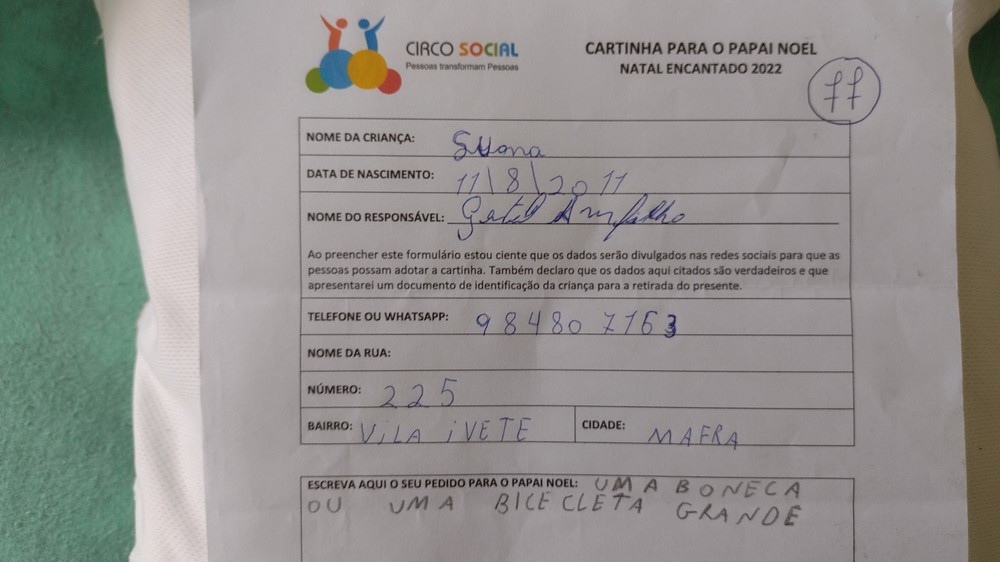 CIRCO SOCIAL
Pessoas transformam Pessoas
CARTINHA PARA O PAPAI NOEL
NATAL ENCANTADO 2022
77
NOME DA CRIANÇA:
DATA DE NASCIMENTO: 11\8\2011
NOME DO RESPONSÁVEL:
Ao preencher este formulário estou ciente que os dados serão divulgados nas redes sociais para que as
pessoas possam adotar a cartinha. Também declaro que os dados aqui citados são verdadeiros e que
apresentarei um documento de identificação da criança para a retirada do presente.
TELEFONE OU WHATSAPP: 984807163
NOME DA RUA:
NÚMERO: 225
BAIRRO: ViLA iVETE CIDADE: MAFRA
ESCREVA AQUI O SEU PEDIDO PARA O PAPAI NOEL: UMA BONECA
OU UMA BICECLETA GRANDE